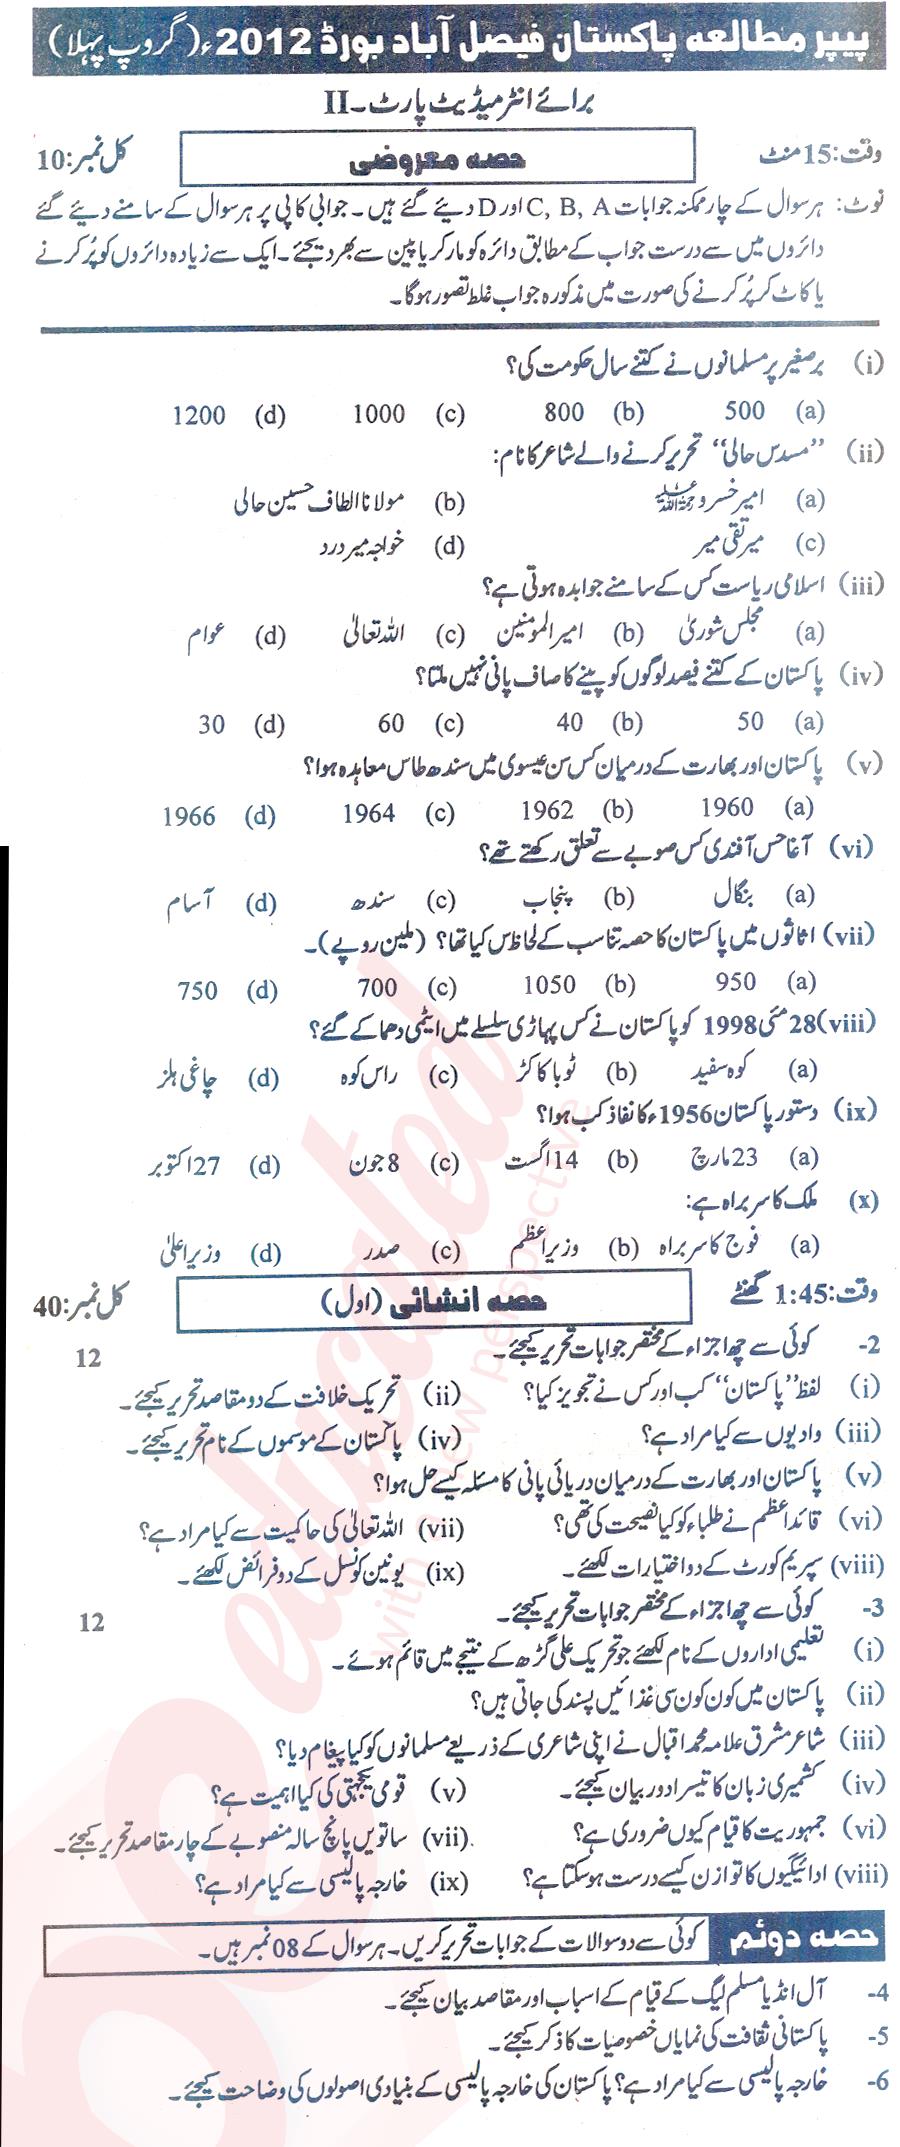 پیپر مطالعہ پاکستان فیصل آباد بورڈ 2012ء (گروپ پہلا)
برائے انٹرمیڈیٹ پارٹ۔II
وقت:15 منٹ حصہ معروضی کل نمبر:10
نوٹ: ہر سوال کے چار ممکنہ جوابات C, B, A اور D دیئے گئے ہیں۔ جوابی کاپی پر ہر سوال کے سامنے دیئے گئے
دائروں میں سے درست جواب کے مطابق دائرہ کو مارکر یا پین سے بھر دیجئے۔ ایک سے زیادہ دائروں کو پُر کرنے
یا کاٹ کر پُر کرنے کی صورت میں مذکورہ جواب غلط تصور ہو گا۔
(i) برصغیر پر مسلمانوں نے کتنے سال حکومت کی؟
(a) 500 (b) 800 (c) 1000 (d) 1200
(ii) ’’مسدس حالی‘‘ تحریر کرنے والے شاعر کا نام:
(a) امیر خسرو رحمۃ اللہ علیہ (b) مولانا الطاف حسین حالی
(c) میر تقی میر (d) خواجہ میر درد
(iii) اسلامی ریاست کس کے سامنے جوابدہ ہوتی ہے؟
(a) مجلس شوریٰ (b) امیر المومنین (c) اللہ تعالیٰ (d) عوام
(iv) پاکستان کے کتنے فیصد لوگوں کو پینے کا صاف پانی نہیں ملتا؟
(a) 50 (b) 40 (c) 60 (d) 30
(v) پاکستان اور بھارت کے درمیان کس سن عیسوی میں سندھ طاس معاہدہ ہوا؟
(a) 1960 (b) 1962 (c) 1964 (d) 1966
(vi) آغا حسن آفندی کس صوبے سے تعلق رکھتے تھے؟
(a) بنگال (b) پنجاب (c) سندھ (d) آسام
(vii) اثاثوں میں پاکستان کا حصہ تناسب کے لحاظ س کیا تھا؟ (ملین روپے)۔
(a) 950 (b) 1050 (c) 700 (d) 750
(viii) 28 مئی 1998 کو پاکستان نے کس پہاڑی سلسلے میں ایٹمی دھماکے گئے؟
(a) کوہ سفید (b) ٹوبا کاکڑ (c) راس کوہ (d) چاغی ہلز
(ix) دستور پاکستان 1956ء کا نفاذ کب ہوا؟
(a) 23 مارچ (b) 14 اگست (c) 8 جون (d) 27 اکتوبر
(x) ملک کا سربراہ ہے:
(a) فوج کا سربراہ (b) وزیراعظم (c) صدر (d) وزیراعلیٰ
وقت:1:45 گھنٹے حصہ انشائی (اول) کل نمبر:40
2- کوئی سے چھ اجزاء کے مختصر جوابات تحریر کیجئے۔ 12
(i) لفظ ’’پاکستان‘‘ کب اور کس نے تجویز کیا؟ (ii) تحریک خلافت کے دو مقاصد تحریر کیجئے۔
(iii) وادیوں سے کیا مراد ہے؟ (iv) پاکستان کے موسموں کے نام تحریر کیجئے۔
(v) پاکستان اور بھارت کے درمیان دریائی پانی کا مسئلہ کیسے حل ہوا؟
(vi) قائداعظم نے طلباء کو کیا نصیحت کی تھی؟ (vii) اللہ تعالیٰ کی حاکمیت سے کیا مراد ہے؟
(viii) سپریم کورٹ کے دو اختیارات لکھئے۔ (ix) یونین کونسل کے دو فرائض لکھئے۔
3- کوئی سے چھ اجزاء کے مختصر جوابات تحریر کیجئے۔ 12
(i) تعلیمی اداروں کے نام لکھئے جو تحریک علی گڑھ کے نتیجے میں قائم ہوئے۔
(ii) پاکستان میں کون کون سی غذائیں پسند کی جاتی ہیں؟
(iii) شاعر مشرق علامہ محمد اقبال نے اپنی شاعری کے ذریعے مسلمانوں کو کیا پیغام دیا؟
(iv) کشمیری زبان کا تیسرا دور بیان کیجئے۔ (v) قومی یکجہتی کی کیا اہمیت ہے؟
(vi) جمہوریت کا قیام کیوں ضروری ہے؟ (vii) ساتویں پانچ سالہ منصوبے کے چار مقاصد تحریر کیجئے۔
(viii) ادائیگیوں کا توازن کیسے درست ہو سکتا ہے؟ (ix) خارجہ پالیسی سے کیا مراد ہے؟
حصہ دوئم کوئی سے دو سوالات کے جوابات تحریر کریں۔ ہر سوال کے 08 نمبر ہیں۔
4- آل انڈیا مسلم لیگ کے قیام کے اسباب اور مقاصد بیان کیجئے۔
5- پاکستانی ثقافت کی نمایاں خصوصیات کا ذکر کیجئے۔
6- خارجہ پالیسی سے کیا مراد ہے؟ پاکستان کی خارجہ پالیسی کے بنیادی اصولوں کی وضاحت کیجئے۔
be educated
with new perspective